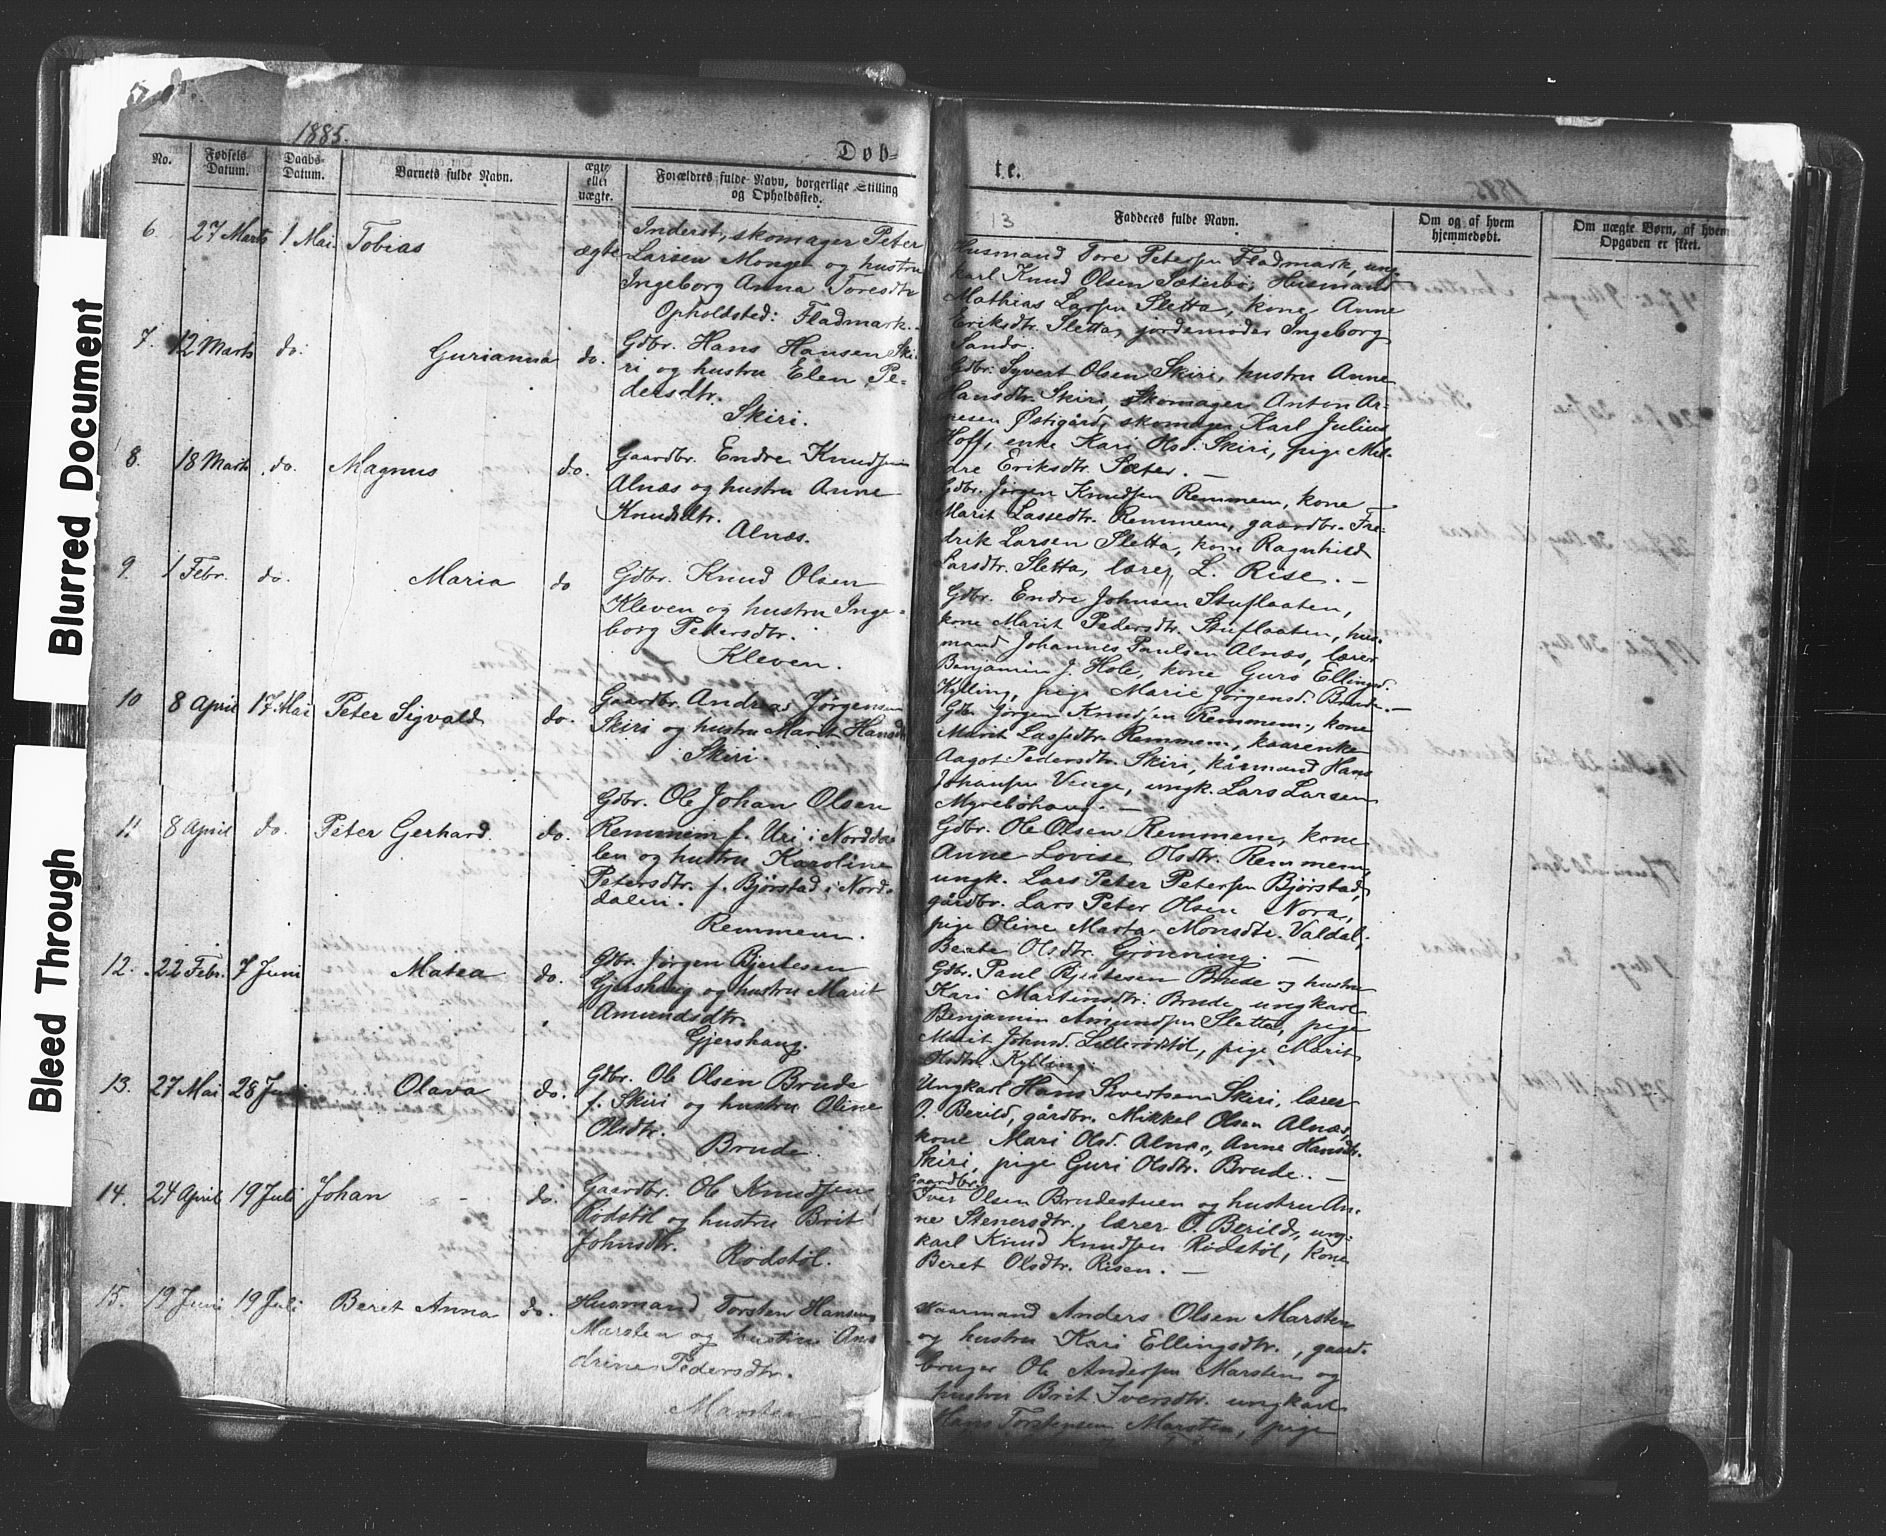 Blurred Document
Bleed Through
1885.
Døb-
te.
13
No.
Fødsels Datum.
Daabs- Datum.
Barnets fulde Navn.
ægte eller uægte.
Forældres fulde Navn, borgerlige Stilling og Opholdssted.
Fadderes fulde Navn.
Om og af hvem hjemmedøbt.
Om uægte Børn, af hvem Opgaven er sket.
6 27 Marts 1 Mai Tobias ægte
Inderst, skomager Peter
Larsen Monge og hustru
Ingeborg Anna Toresdtr
Opholdsted: Fladmark.
Husmand Tore Petersen Fladmark, ung-
karl Knud Olsen Sæterbø, Husmand
Mathias Larsen Sletta, kone Anne
Eriksdtr. Sletta, jordemoder Ingeborg
Sando.
7. 12 Marts do. Gurianna do.
Gdbr. Hans Hansen Ski-
ri og hustru Elen Pe-
dersdtr.
Skiri.
Gdbr. Syvert Olsen Skiri, hustru Anne
Hansdtr. Skiri, skomager Anton Ar-
nesen Østigård, skomager Karl Julius
Hoff, enke Kari Olsd. Skiri, pige Mil-
dre Eriksdtr. Sæter. —
8. 18 Marts do. Magnus do.
Gaardbr. Endre Knudsen
Alnæs og hustru Anne
Knudsdtr.
Alnæs.
Gdbr. Jørgen Knudsen Remmem, kone
Marit Lassedtr. Remmem, gaardbr. Fre-
drik Larsen Sletta, kone Ragnhild
Larsdtr. Sletta, lærer L. Rise. —
9. 1 Febr. do. Maria do
Gdbr. Knud Olsen
Kleven og hustru Inge-
borg Pedersdtr.
Kleven.
Gdbr. Endre Johnsen Stuflaaten,
kone Marit Pedersdtr. Stuflaaten, hus-
mand Johannes Paulsen Alnæs, lærer
Benjamin J. Hole, kone Guro Ellingsd.
Kylling, pige Marie Jørgensd. Brude. —
10 8 April 17. Mai Peter Sigvald do.
Gaardbr. Andreas Jørgensen
Skiri og hustru Marit Hansdtr
Skiri.
Gdbr. Jørgen Knudsen Remmem, kone
Marit Lassedtr. Remmem, kaarenke
Aagot Pedersdtr. Skiri, kårmand Hans
Johansen Venge, ungk. Lars Larsen
Myrebøhaug. —
11 8 April do. Peter Gerhard do.
Gdbr. Ole Johan Olsen
Remmem f. Uri i Nordda-
len og hustru Karoline
Petersdtr. f. Bjørstad i Nord-
dalen.
Remmem.
Gdbr. Ole Olsen Remmem, kone
Anne Lovise Olsdtr. Remmem,
ungk. Lars Peter Petersen Bjørstad,
gårdbr. Lars Peter Olsen Nora,
pige Oline Marta Monsdtr. Valdal,
Beate Olsdtr. Grønning. —
12. 22 Febr. 7 Juni Matea do.
Gdbr. Jørgen Bjertesen
Gjershaug og hustru Marit
Amundsdtr.
Gjershaug.
Gdbr. Paul Bjertesen Brude og hustru
Kari Martinsdtr. Brude, ungkarl
Benjamin Amundsen Sletta, pige
Marit Johnsd. Lillerødstøl, pige Marit
Olsdtr. Kylling.
13. 27 Mai 28 Juni Olava do.
Gdbr. Ole Olsen Brude
f. Skiri og hustru Oline
Olsdtr.
Brude.
Ungkarl Hans Sivertsen Skiri, lærer
O. Berild, gårdbr. Mikkel Olsen Alnæs,
kone Mari Olsd. Alnæs, Anne Hansdtr.
Skiri, pige Guri Olsdtr. Brude. —
14. 24 April 19 Juli Johan do.
Gaardbr. Ole Knudsen
Rødstøl og hustru Brit
Johnsdtr.
Rødstøl.
Gaardbr.
Iver Olsen Brudestuen og hustru An-
ne Stenersdtr., lærer O. Berild, ung-
karl Knud Knudsen Rødstøl, kone
Beret Olsdtr. Risen. —
15. 19 Juni 19 Juli Beret Anna do.
Husmand Torsten Hansen
Marsten og hustru Ane
drine Pedersdtr.
Marsten
Kaarmand Anders Olsen Marsten
og hustru Kari Ellingsdtr., gaard-
bruger Ole Andersen Marstein og
hustru Brit Iversdtr. ungkarl
Hans Torstensen Marsten, pige